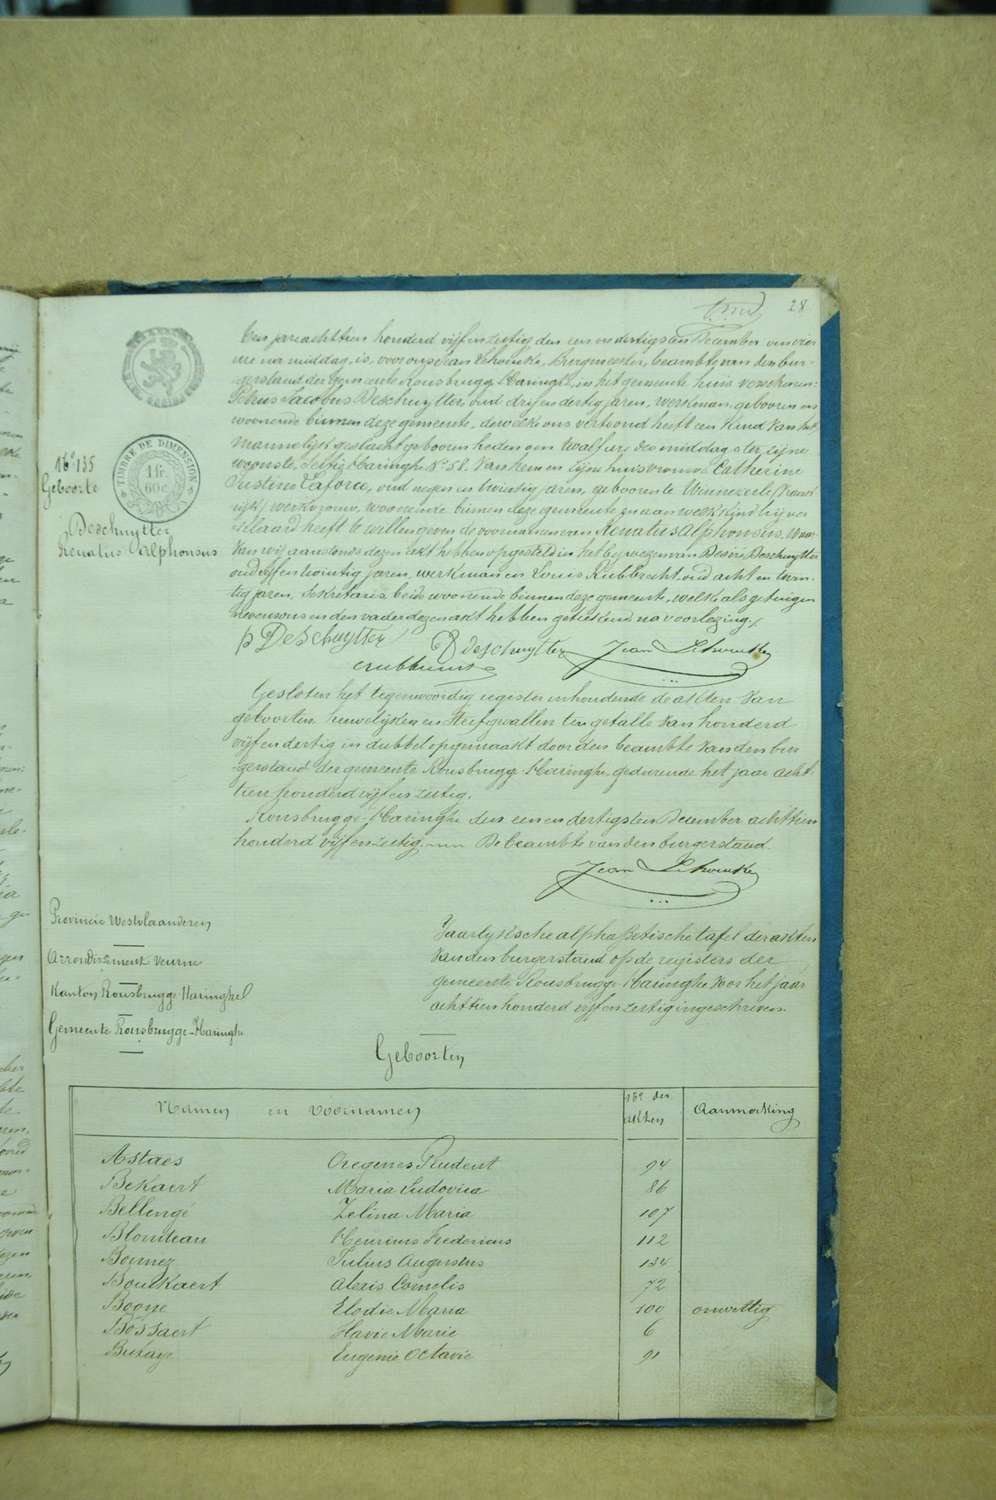 28
Een jaar achttien honderd vijf en zestig den een en dertigsten December om vier
ure na middag, is, voor ons Jean Schoucke, Burgmeester, beambte van den bur-
gerstand der gemeente Rousbrugge Haringhe, in het gemeente huis verschenen
Petrus Jacobus Deschuytter, oud drij en dertig jaren, werkman, geboren en
woonende binnen deze gemeente, dewelke ons vertoond heeft een Kind van het
mannelijk geslacht geboren heden om twaalf ure des middag ster zijne
woonste, Selfig Haringhe No 58. van hem en zijne huisvrouw Catherine
Justine Lafora, oud negen en twintig jaren, geboren te Winnezeele (Frank
rijk) werkvrouw, woonende binnen deze gemeente en aan welk kind hij ver
klaard heeft te willen geven de voornamen van Renatus Alphonsus, Waar
van wij aanstonds dezen akt hebben opgesteld in het bijwezen van Desiré Deschuytter
oud vijf en twintig jaren, werkman en Louis Rubbrecht, oud acht en twin-
tig jaren, sekretaris beide woonende binnen deze gemeente, welke als getuigen
nevens ons en den vader dezen akt hebben geteekend na voorlezing
No 135
Geboorte
Deschuytter
Renatus Alphonsus
TIMBRE DE DIMENSION
1 fr.
60 c.
p Deschuytter D deschuytter Jean Schoucke
Gesloten het tegenwoordig register inhoudende de akten van
geboorten huwelijken en sterfgevallen ten getalle van honderd
vijf en dertig in dubbel opgemaakt door den beambte van den bur
gerstand der gemeente Rousbrugge Haringhe gedurende het jaar acht
tien honderd vijf en zestig.
Rousbrugge-Haringhe den een en dertigsten December achttien
honderd vijf en zestig De beambte van den burgerstand
Jean Schoucke
Provincie Westvlaanderen
Arrondissement Veurne
Kanton Rousbrugge Haringhe
Gemeente Rousbrugge-Haringhe
Jaarlyksche alphabetische tafel der akten
van den burgerstand op de registers der
gemeente Rousbrugge Haringhe voor het jaar
achttien honderd vijf en zestig ingeschreven.
Geboorten
Namen en Voornamen No der akten Aanmerking
Astaes Oregenes Prudent 94
Bekaert Maria Ludovica 86
Bellengé Zelina Maria 107
Blondeau Henricus Fredericus 112
Boemez Julius Augustus 134
Bouckaert Alexis Cornelis 72
Boone Elodie Maria 100 onwettig
Bossaert Flavie Marie 6
Butaye Eugenie Octavie 91